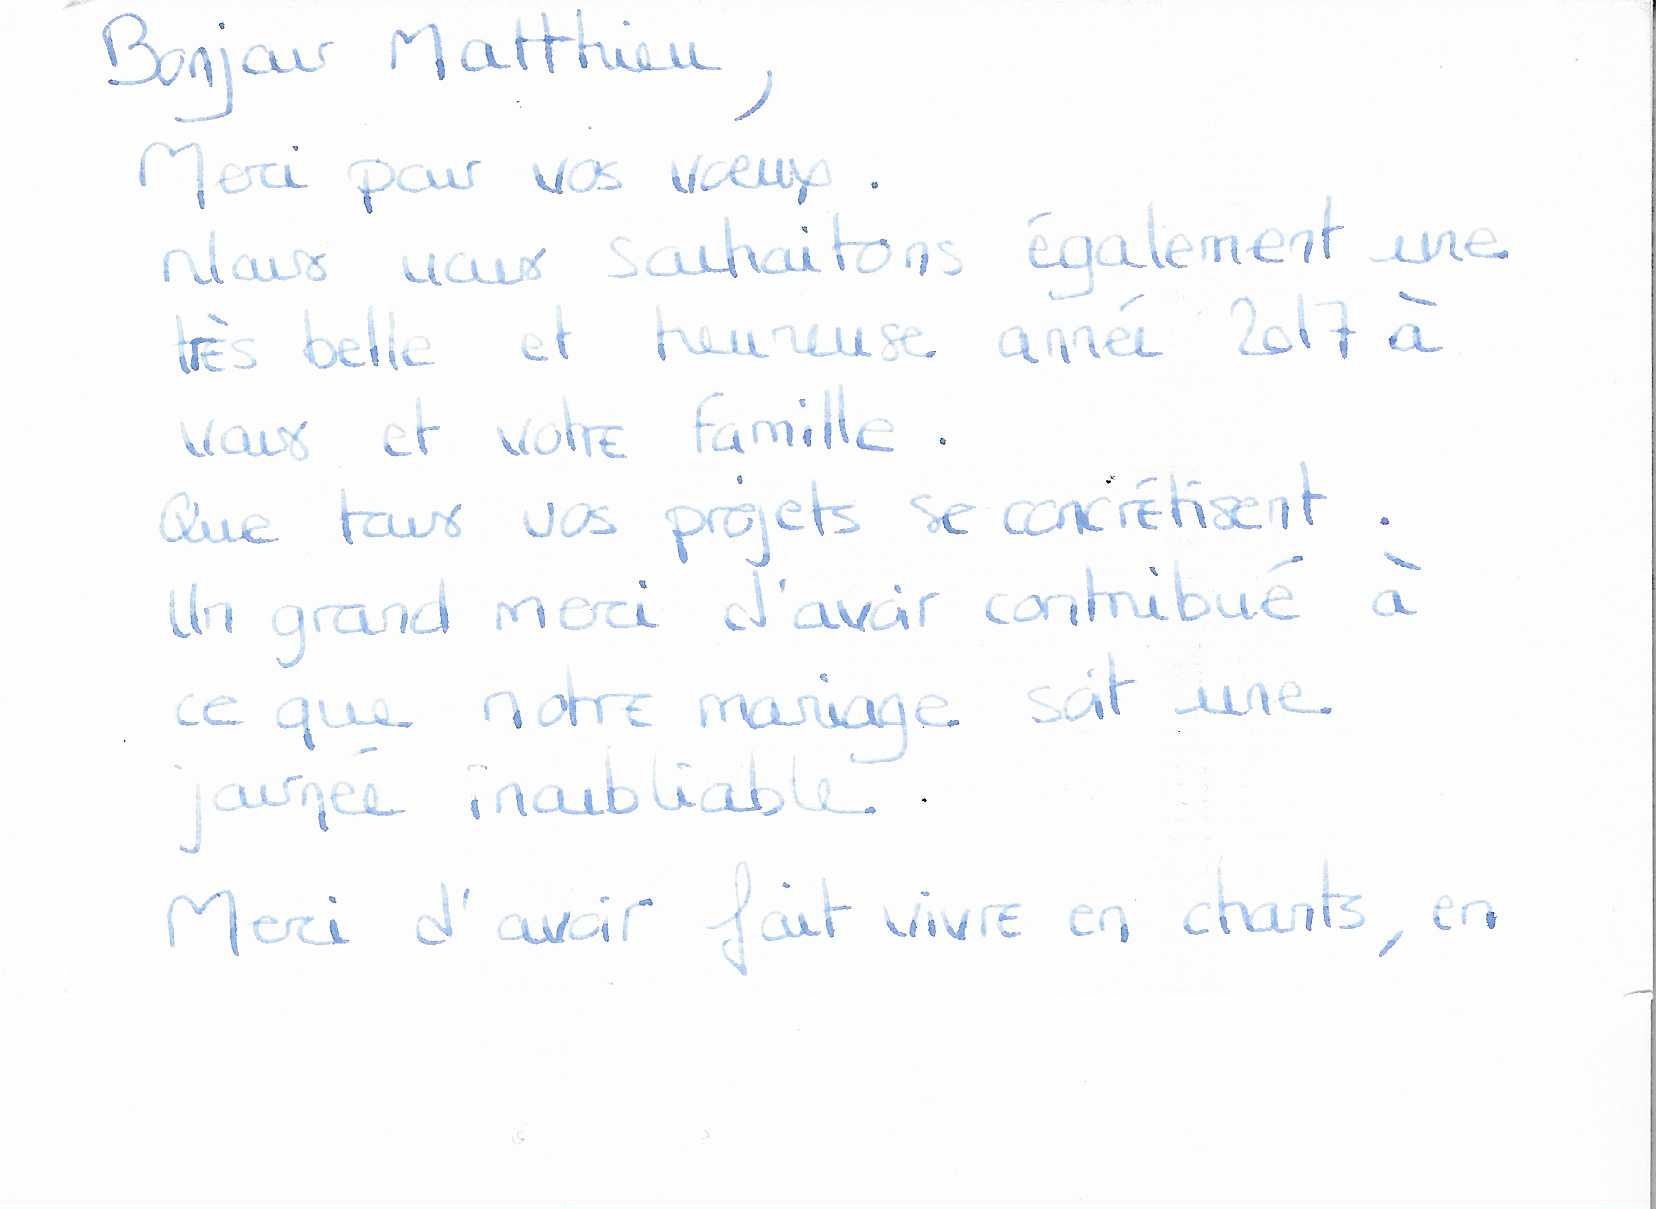 Bonjour Matthieu,
Merci pour vos vœux.
Nous vous souhaitons également une
très belle et heureuse année 2017 à
vous et votre famille.
Que tous vos projets se concrétisent.
Un grand merci d'avoir contribué à
ce que notre mariage soit une
journée inoubliable.
Merci d'avoir fait vivre en chants, en